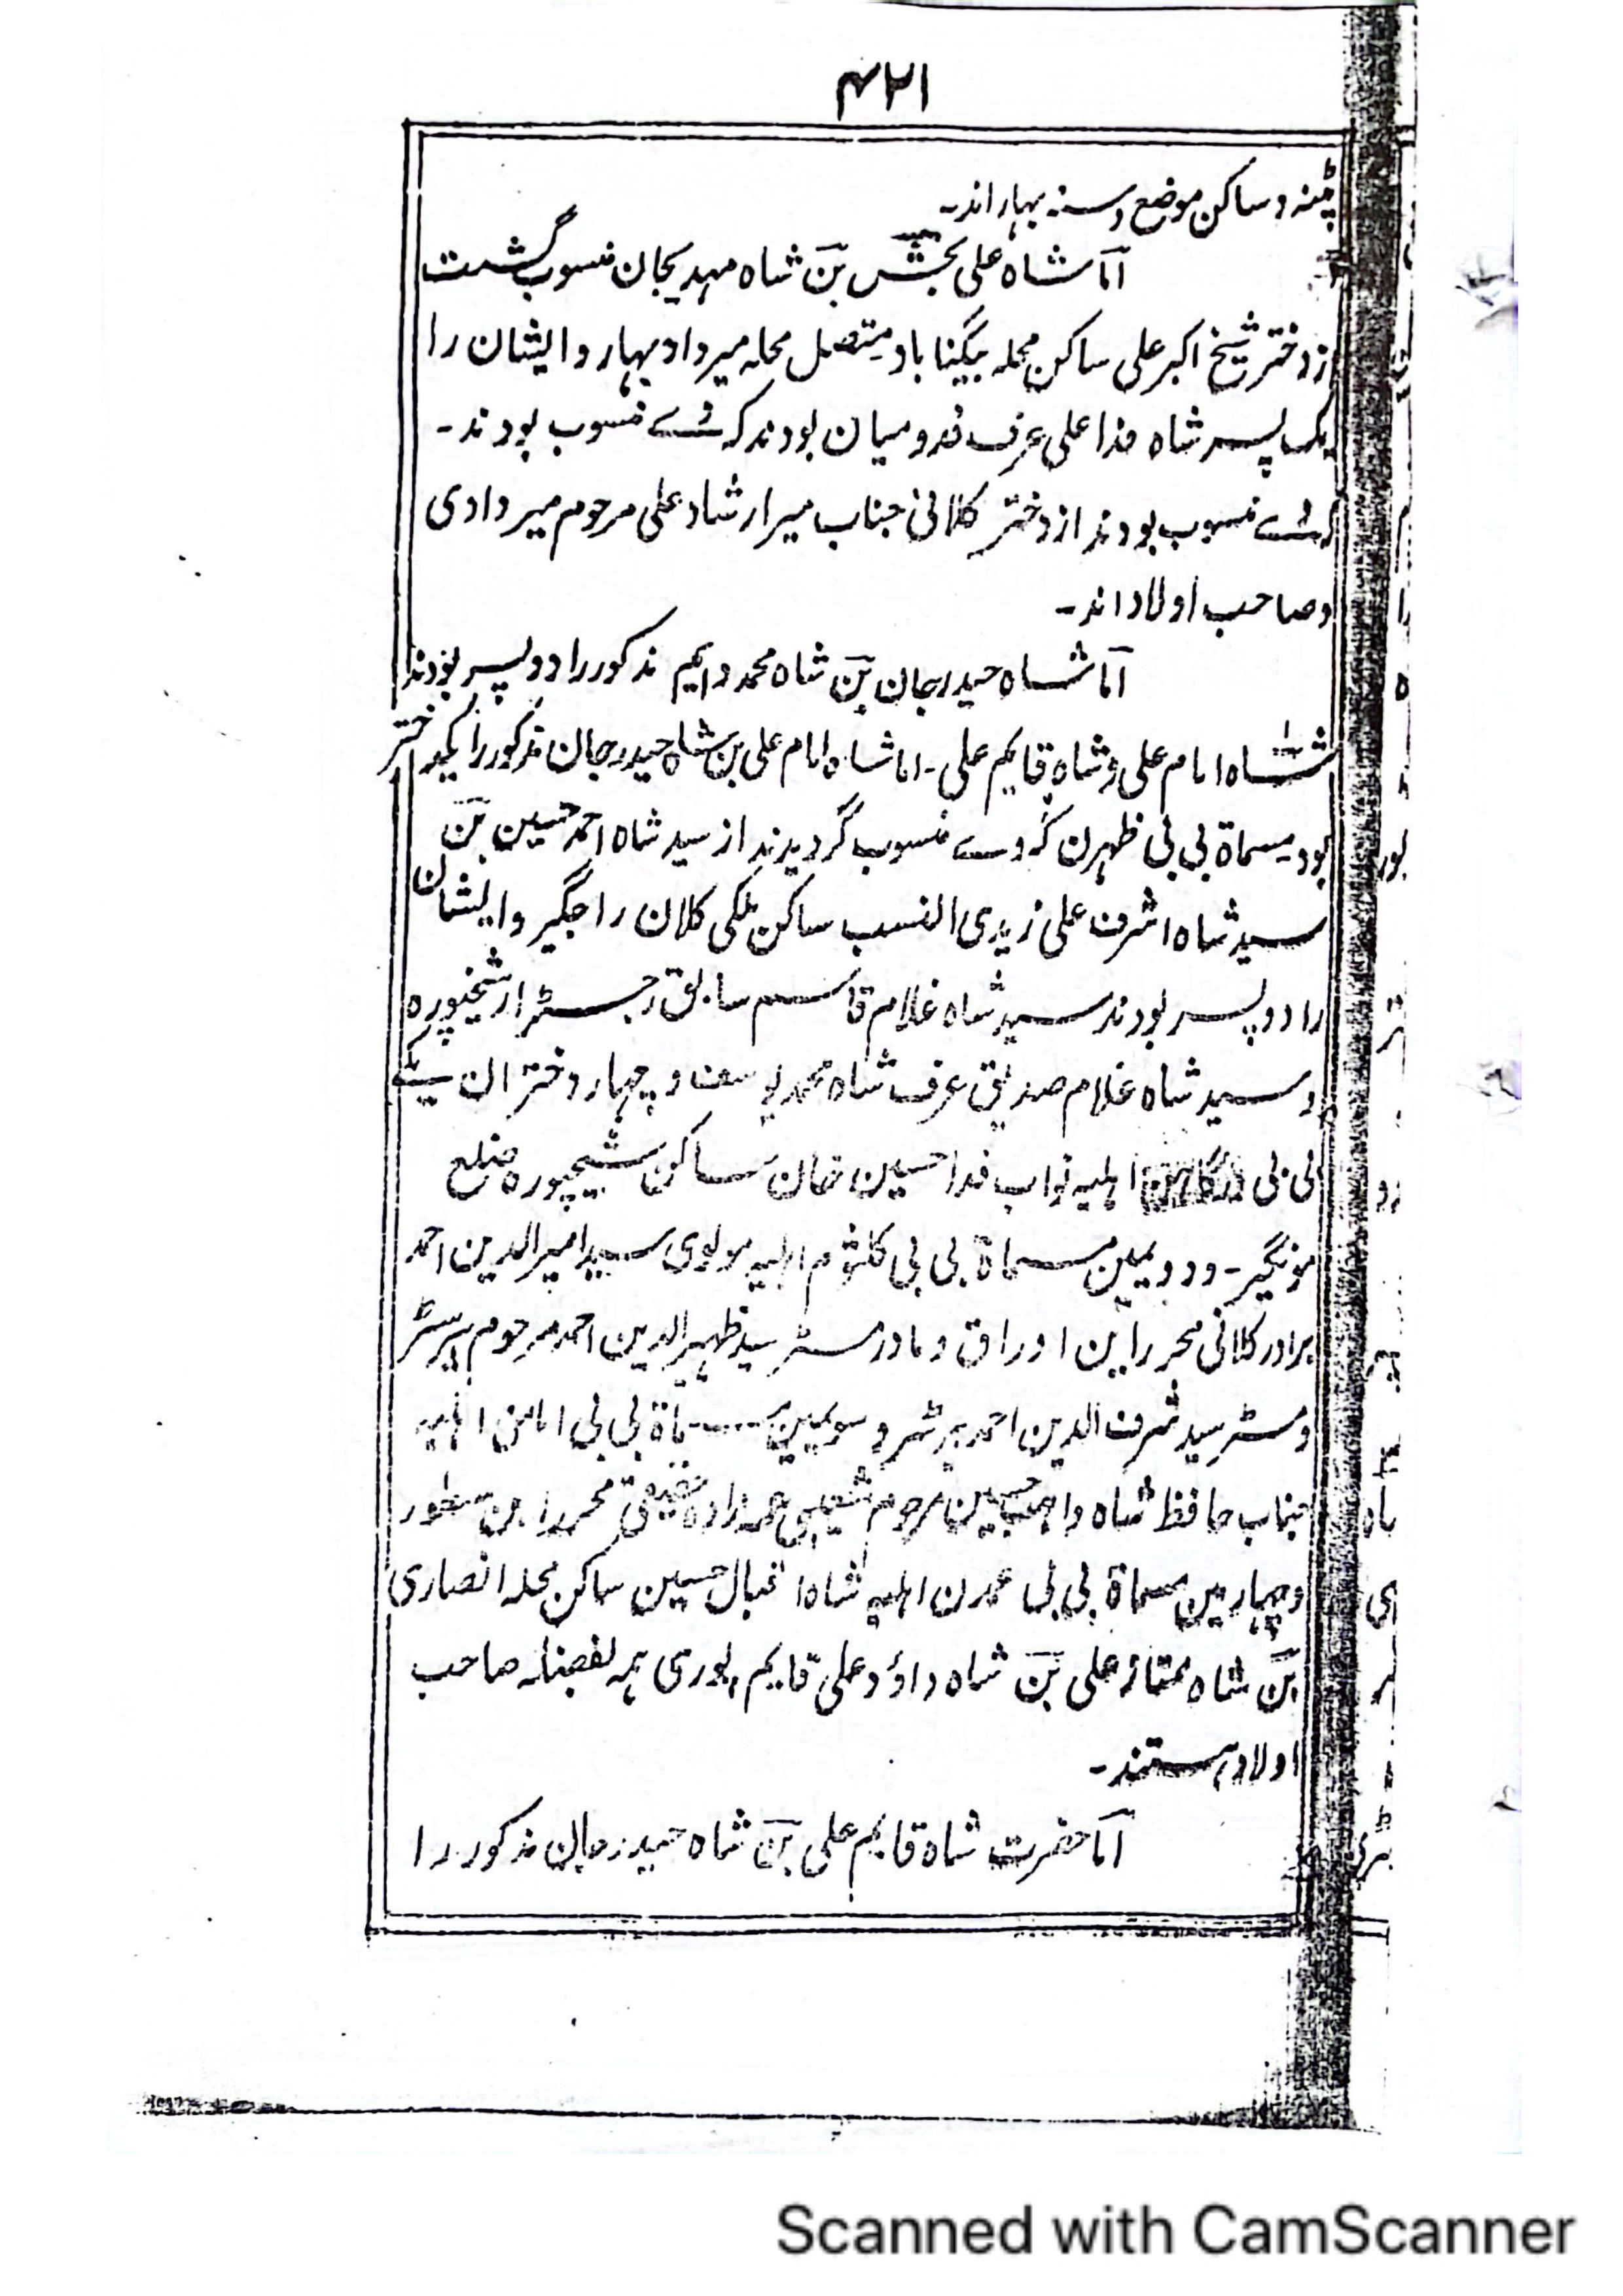 ۴۲۱
پٹنہ و ساکن موضع وسنہ بہار اند۔
اما شاہ علی بخش بن شاہ مہدیجان منسوب گشت
از دختر شیخ اکبر علی ساکن محلہ بیگناباد متصل محلہ میرداد بہار و ایشان را
یک پسر شاہ فدا علی عرف فدو میان بودند کہ وے منسوب بودند۔
کہ وے منسوب بودند از دختر کلانی جناب میر ارشاد علی مرحوم میردادی
و صاحب اولاد اند۔
اما شاہ حیدرجان بن شاہ محمد دایم مذکور را دو پسر بودند
شاہ امام علی و شاہ قایم علی۔ اما شاہ امام علی بن شاہ حیدرجان مذکور را یکدختر
بود مسماۃ بی بی ظہرن کہ وے منسوب گردیدند از سید شاہ احمد حسین بن
سید شاہ اشرف علی زیدی النسب ساکن ملکی کلان راجگیر و ایشان
را دو پسر بودند سید شاہ غلام قاسم سابق رجسٹرار شیخپورہ
و سید شاہ غلام صدیق عرف شاہ محمد یوسف و چہار دختران یکے
بی بی اہلیہ نواب فدا حسین خان ساکن شیخپورہ ضلع
مونگیر۔ و دویمین مسماۃ بی بی کلثوم اہلیہ مولوی سید امیرالدین احمد
برادر کلانی محرر این اوراق و مادر مسٹر سید ظہیرالدین احمد مرحوم بیرسٹر
و مسٹر سید شرف الدین احمد بیرسٹر و سویمین مسماۃ بی بی امامن اہلیہ
جناب حافظ شاہ واجد حسین مرحوم شعیبی عمہ زادہ حقیقی محرر این سطور
و چہارمین مسماۃ بی بی عمدن اہلیہ شاہ اقبال حسین ساکن محلہ انصاری
بن شاہ ممتاز علی بن شاہ داؤد علی قایم پوری ہمہ بفضلہ صاحب
اولاد ہستند۔
اما حضرت شاہ قایم علی بن شاہ حیدرجان مذکور را
Scanned with CamScanner